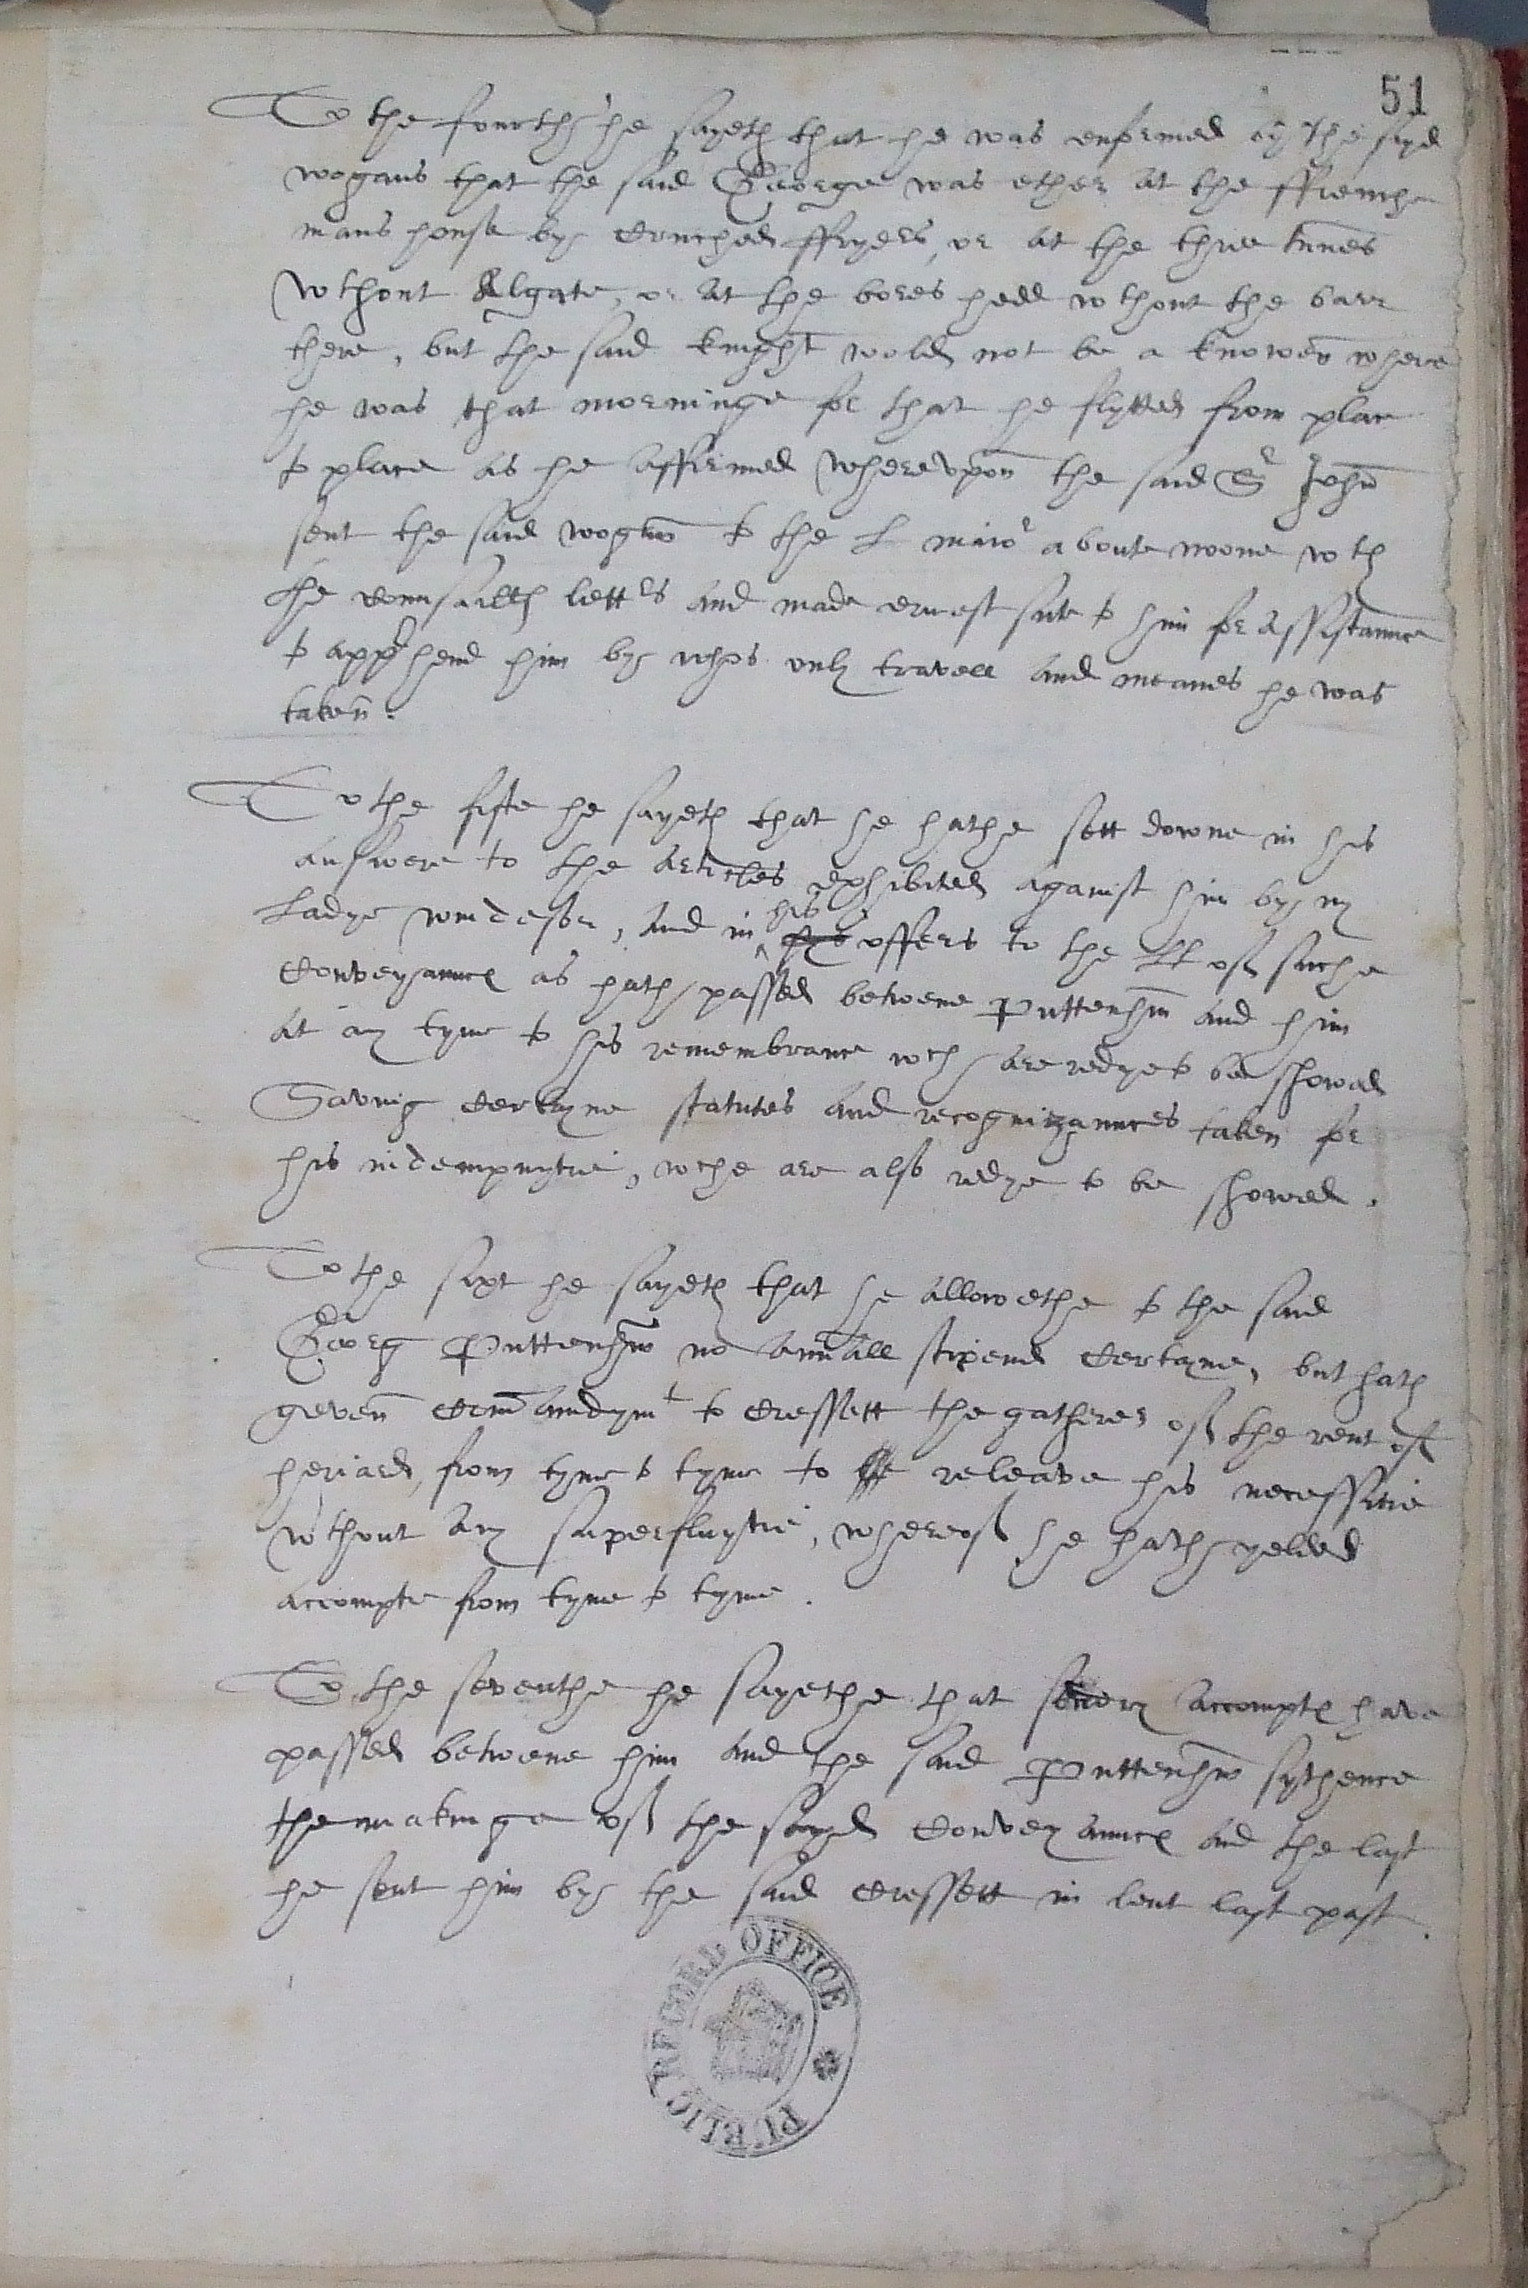 51
To the fourth he sayeth that he was enformed by the sayd
wogans that the said George was ether at the ffrenche
mans house by Crouched ffryers, or at the three tunnes
wthout Algate, or at the bores hedd wthout the barr
there, but the said knight wold not be a knowen where
he was that morninge for that he flytted from place
to place as he affirmed wherevpon the said Sr John
sent the said wogan to the L maior aboute noone wth
the counsailles lettrs and made ernest sute to him for assistaunce
to apprhend him by whos only travell and meanes he was
taken.
To the fifte he sayeth that he hathe sett downe in his
answere to the articles exhibited against him by my
Ladye windesor, and in his offers to the LL of suche
Conveyaunces as hath passed betwene Puttenham and him
at any tyme to his remembrance wch are redye to be showed
Saving certayne statutes and recognizaunces taken for
his indempnytie, wche are also redye to be showed.
To the sixt he sayeth that he allowethe to the said
Georg Puttenham no annall stipend certayne, but hath
geven comaundymt to Cressett the gatherer of the rent of
heriard, from tyme to tyme to releave his necessitie
wthout any superfluytie, whereof he hath yelded
accompte from tyme to tyme.
To the seventhe he sayethe that accomptes have
passed betwene him and the said Puttenham sythence
the makinge of the sayd Conveyaunces and the last
he sent him by the said Cressett in lent last past.
PUBLIC RECORD OFFICE